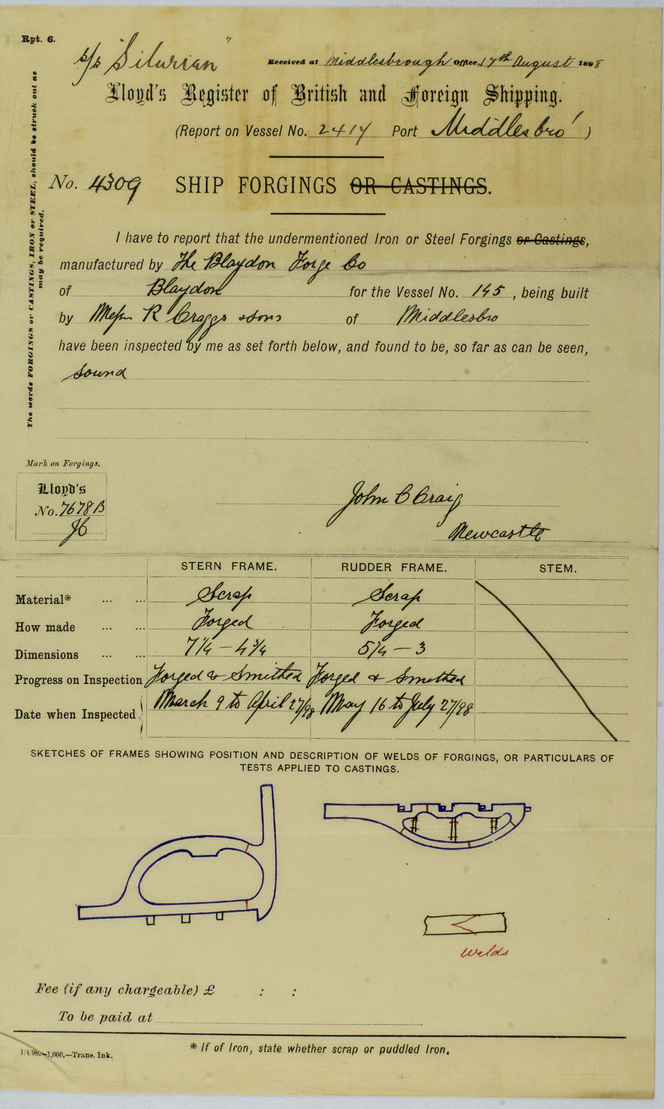 Rpt. 6.
s/s "Silurian"
Received at Middlesbrough Office 17th August 1898
Lloyd's Register of British and Foreign Shipping.
(Report on Vessel No. 2417 Port Middlesbro')
No. 4309 SHIP FORGINGS OR CASTINGS.
The words FORGINGS or CASTINGS, IRON or STEEL, should be struck out as
may be required.
I have to report that the undermentioned Iron or Steel Forgings or Castings,
manufactured by The Blaydon Forge Co
of Blaydon for the Vessel No. 145, being built
by Messrs R Craggs & Sons of Middlesbro
have been inspected by me as set forth below, and found to be, so far as can be seen,
sound
Mark on Forgings.
Lloyd's
No. 7678B
JC
John C Craig
Newcastle
STERN FRAME. RUDDER FRAME. STEM.
Material* ... ... Scrap Scrap
How made ... ... Forged Forged
Dimensions ... ... 7¼ - 4¾ 5¼ - 3
Progress on Inspection Forged & Smithed Forged & Smithed
Date when Inspected March 9 to April 27/98 May 16 to July 27/98
SKETCHES OF FRAMES SHOWING POSITION AND DESCRIPTION OF WELDS OF FORGINGS, OR PARTICULARS OF
TESTS APPLIED TO CASTINGS.
welds
Fee (if any chargeable) £ : :
To be paid at
* If of Iron, state whether scrap or puddled Iron.
1/4/98.—1,000.—Trans. Ink.